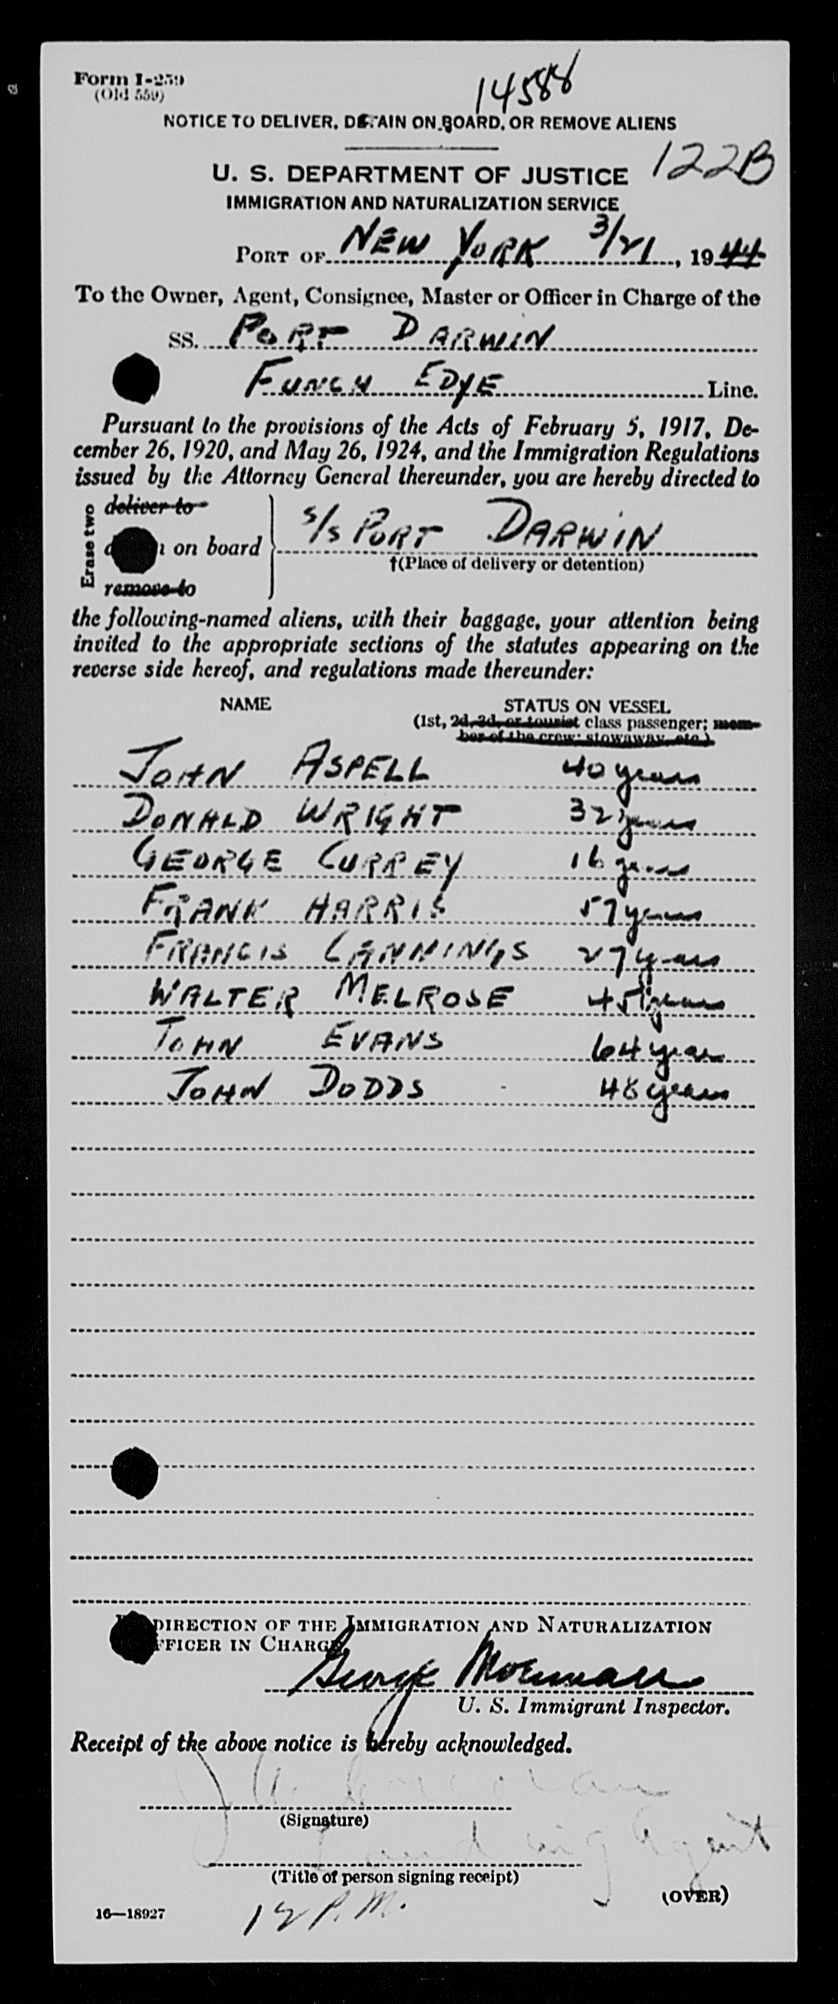 Form I-259
(Old 559)
14588
NOTICE TO DELIVER, DETAIN ON BOARD, OR REMOVE ALIENS
122B
U. S. DEPARTMENT OF JUSTICE
IMMIGRATION AND NATURALIZATION SERVICE
PORT OF NEW YORK 3/21, 1944
To the Owner, Agent, Consignee, Master or Officer in Charge of the
SS. PORT DARWIN
FUNCH EDYE Line.
Pursuant to the provisions of the Acts of February 5, 1917, De-
cember 26, 1920, and May 26, 1924, and the Immigration Regulations
issued by the Attorney General thereunder, you are hereby directed to
Erase two
deliver to
on board
remove to
S/S PORT DARWIN
†(Place of delivery or detention)
the following-named aliens, with their baggage, your attention being
invited to the appropriate sections of the statutes appearing on the
reverse side hereof, and regulations made thereunder:
NAME STATUS ON VESSEL
(1st, 2d, 3d, or tourist class passenger; mem-
ber of the crew; stowaway, etc.)
JOHN ASPELL 40 years
DONALD WRIGHT 32 years
GEORGE CURREY 16 years
FRANK HARRIS 57 years
FRANCIS CANNINGS 27 years
WALTER MELROSE 45 years
JOHN EVANS 64 years
JOHN DODDS 48 years
DIRECTION OF THE IMMIGRATION AND NATURALIZATION
OFFICER IN CHARGE,
George
U. S. Immigrant Inspector.
Receipt of the above notice is hereby acknowledged.
(Signature)
Landing Agent
(Title of person signing receipt)
12 P.M.
(OVER)
16—18927